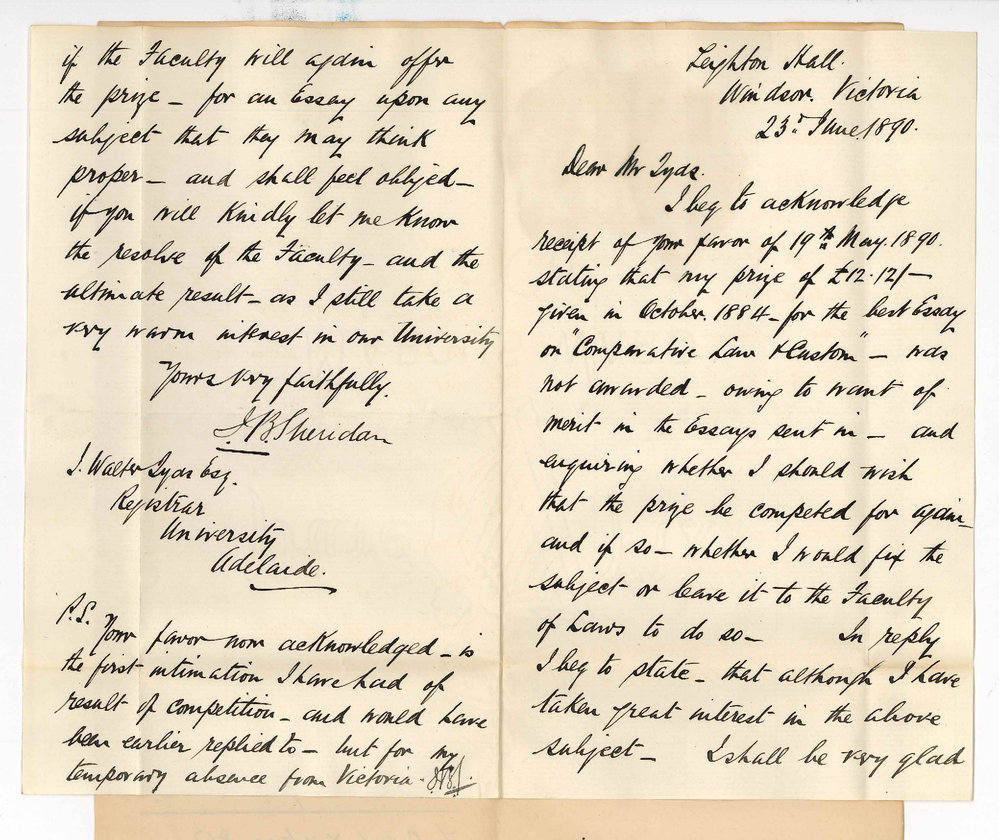 Leighton Hall.
Windsor. Victoria
23rd June 1890.
Dear Mr Tyas.
I beg to acknowledge
receipt of your favor of 19th May. 1890.
stating that my prize of £12.12/-
given in October. 1884 - for the best Essay
on "Comparative Law & Custom" - was
not awarded - owing to want of
merit in the Essays sent in - and
enquiring whether I should wish
that the prize be competed for again -
and if so - whether I would fix the
subject or leave it to the Faculty
of Laws to do so - In reply
I beg to state - that although I have
taken great interest in the above
subject - I shall be very glad
if the Faculty will again offer
the prize - for an Essay upon any
subject that they may think
proper - and shall feel obliged -
if you will Kindly let me Know
the resolve of the Faculty - and the
ultimate result - as I still take a
very warm interest in our University
Yours very faithfully.
J. B. Sheridan
J. Walter Tyas Esq.
Registrar
University
Adelaide.
P.S. Your favor now acknowledged - is
the first intimation I have had of
result of competition - and would have
been earlier replied to - but for my
temporary absence from Victoria. J.B.S.